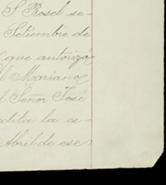 S. Rosel se-
Setiembre de
que autorizó
Mariano
Señor José
edita la ce-
Abril de ese